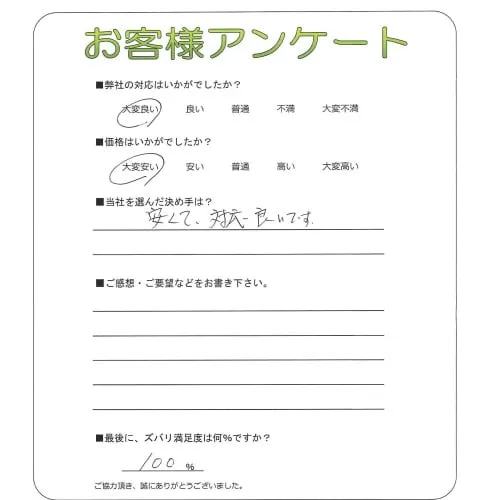 お客様アンケート
■弊社の対応はいかがでしたか？
大変良い 良い 普通 不満 大変不満
■価格はいかがでしたか？
大変安い 安い 普通 高い 大変高い
■当社を選んだ決め手は？
安くて、対応良いです.
■ご感想・ご要望などをお書き下さい。
■最後に、ズバリ満足度は何%ですか？
100 %
ご協力頂き、誠にありがとうございました。